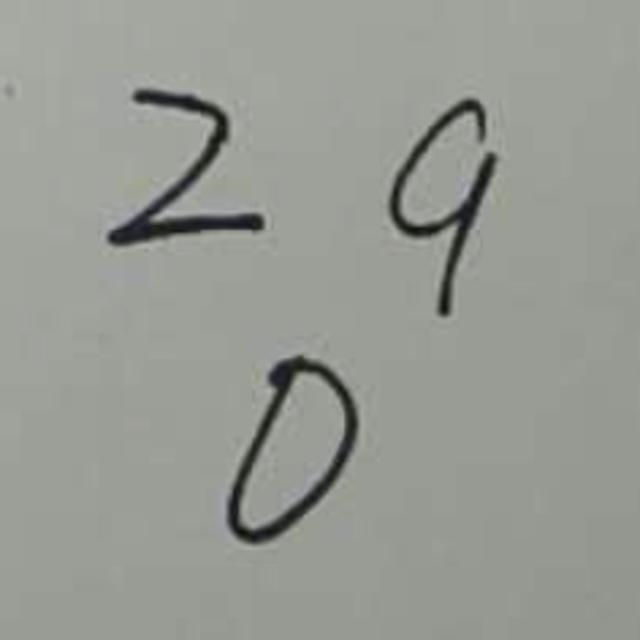 2 9
0